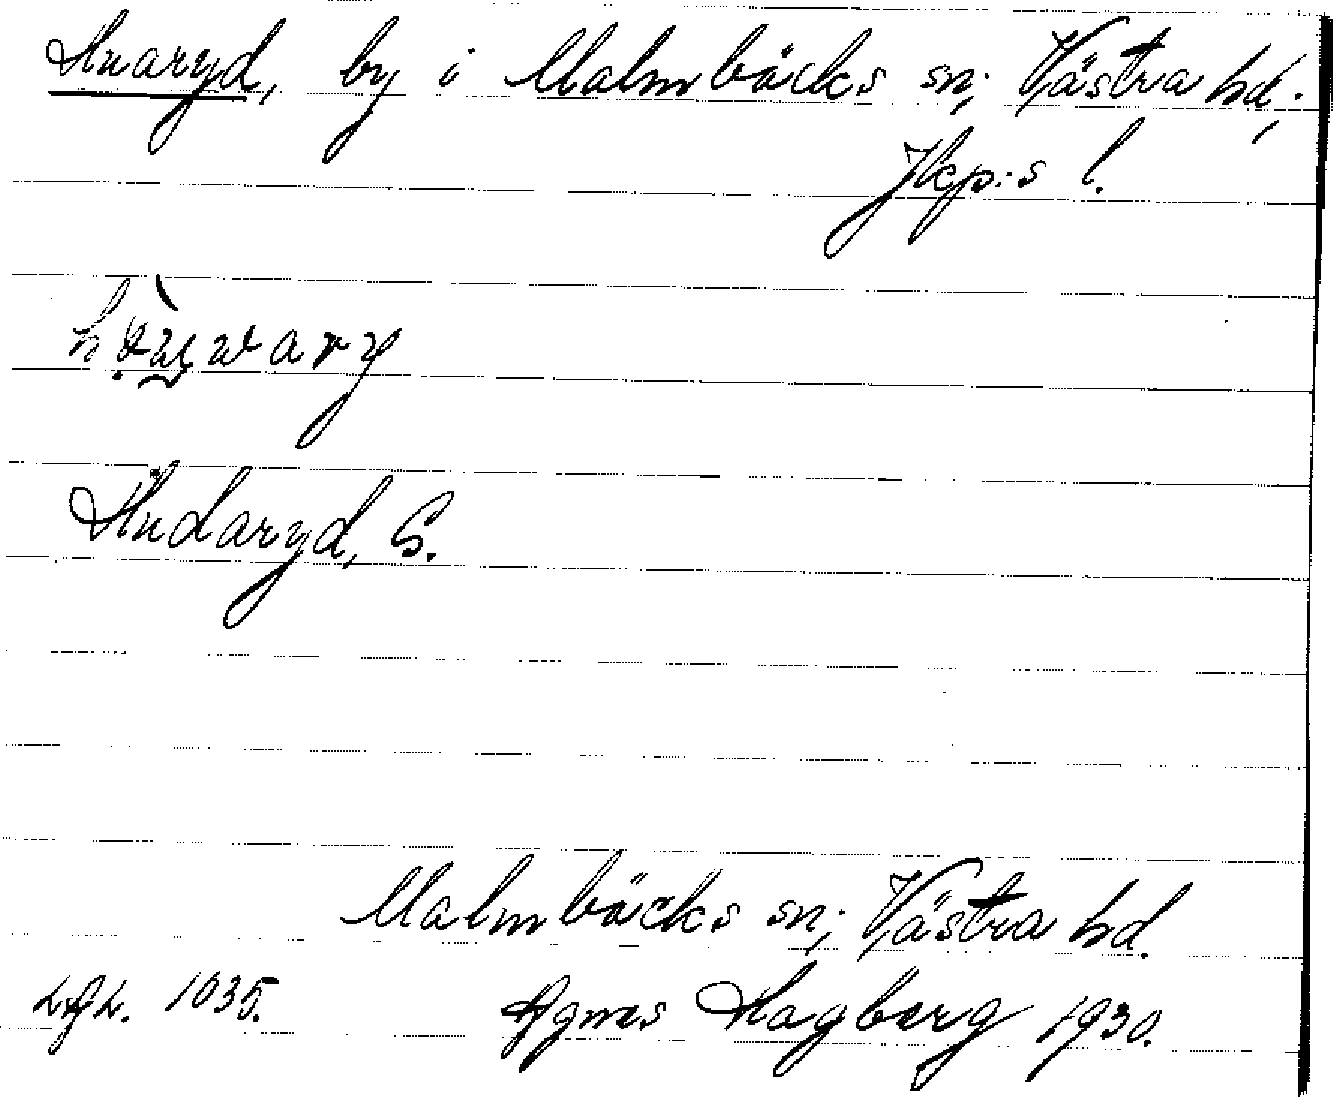 Huaryd, by i Malmbäcks sn; Västra hd;
Jkp:s l.
Hudaryd, S.
Malmbäcks sn; Västra hd.
1035. Agnes Hagberg 1930.